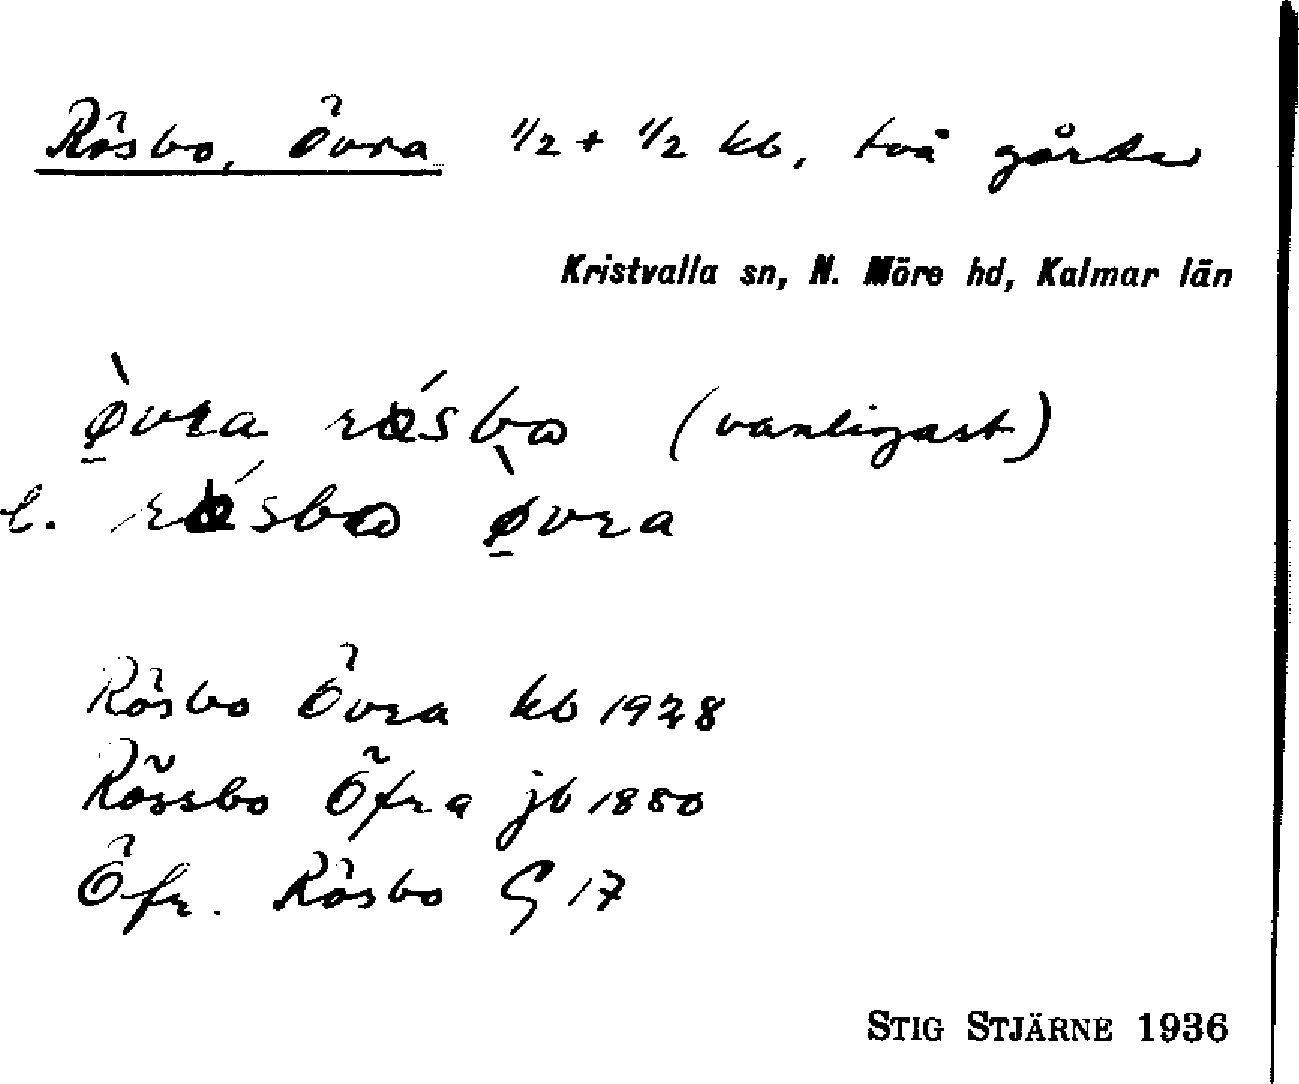 Rösbo, Övra 1/2 + 1/2 kb, två gårdar
Kristvalla sn, N. Möre hd, Kalmar län
ø̀vra rǿsbo (vanligast)
l. rǿsbo ø̀vra
Rösbo Övra kb 1928
Rössbo Öfra jb 1880
Öfr. Rösbo G 17
STIG STJÄRNE 1936